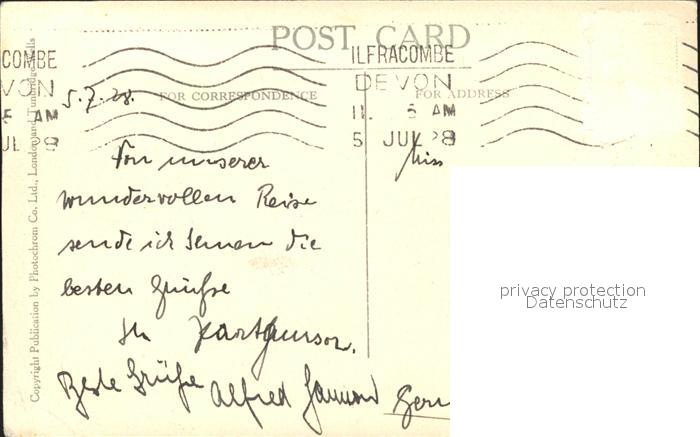 POST CARD
COMBE
ILFRACOMBE
VON
DEVON
5.7.28.
FOR CORRESPONDENCE
FOR ADDRESS
AM
AM
5 JUL 28
Von unserer
Miss
wundervollen Reise
sende ich Ihnen die
besten Grüße
Ihr
Beste Grüße Alfred
Copyright Publication by Photochrom Co. Ltd., London and Tunbridge Wells
privacy protection
Datenschutz